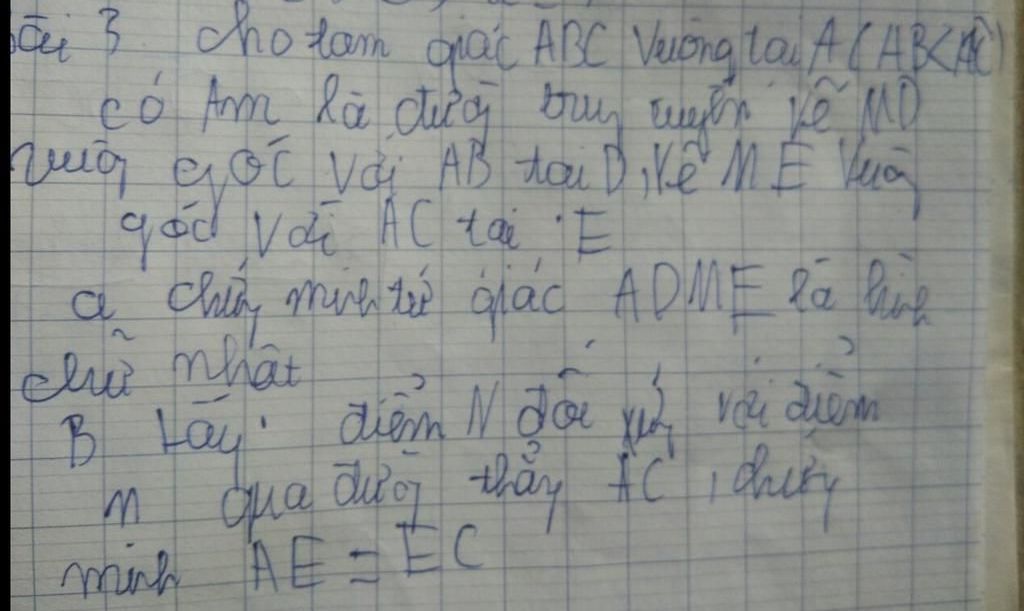 Bài 3 cho tam giác ABC vuông tại A (AB<AC)
có AM là đường trung tuyến vẽ MD
vuông góc với AB tại D, vẽ ME vuông
góc với AC tại E
a chứng minh tứ giác ADME là hình
chữ nhật
B Lấy điểm N đối xứng với điểm
M qua đường thẳng AC, chứng
minh AE = EC